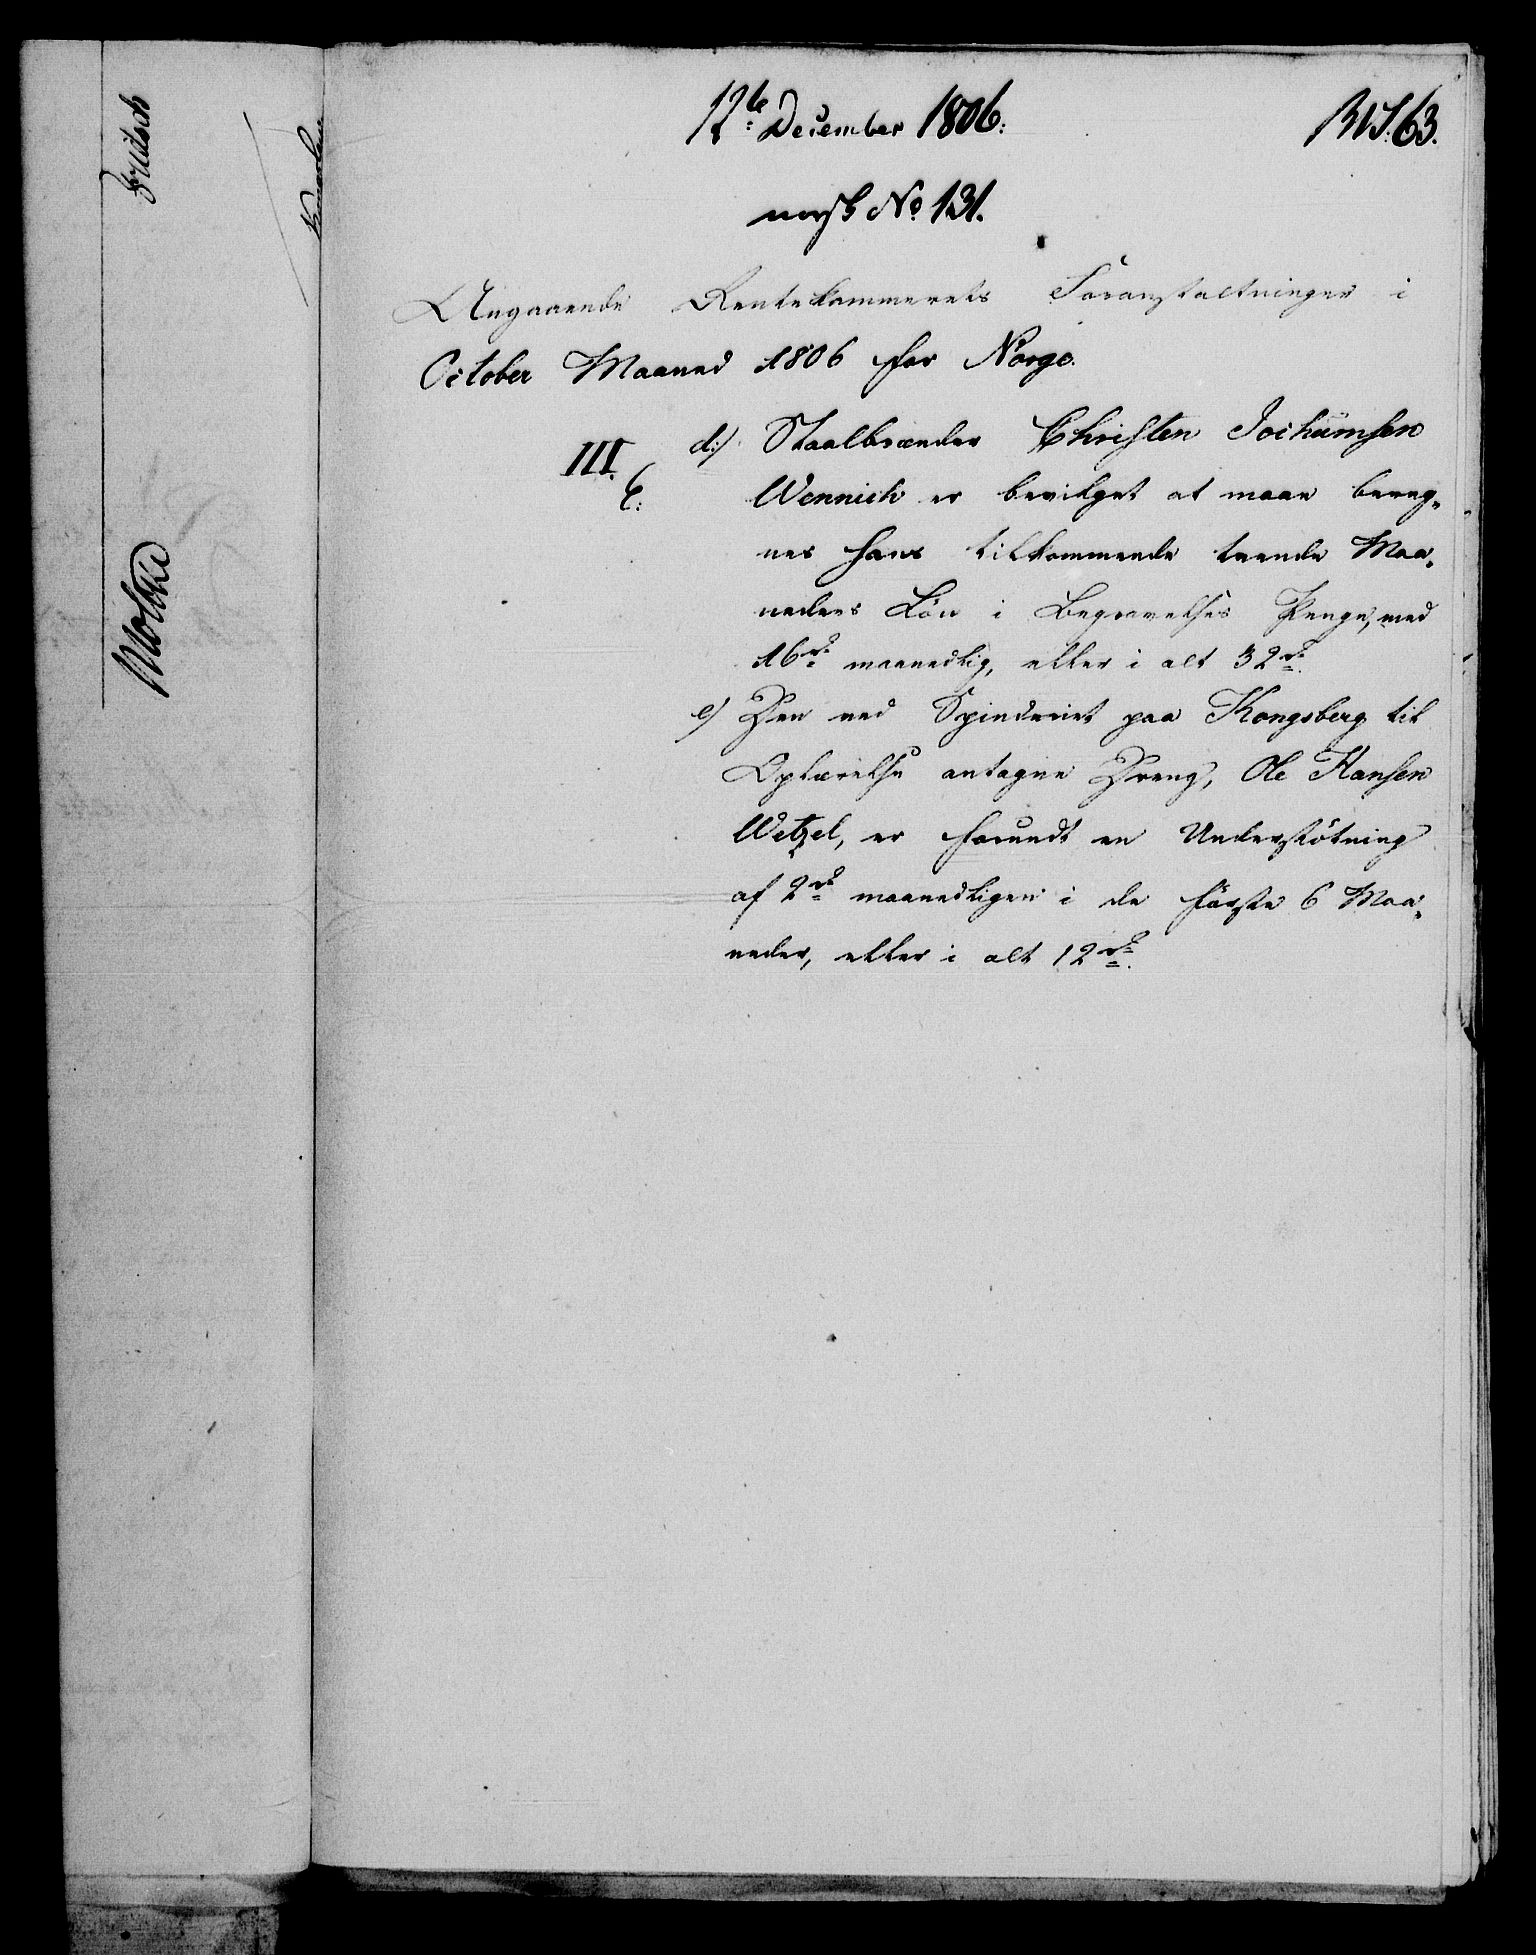 12te December 1806.
norsk No 131.
Angaaende Rentekammerets Foranstaltninger i
October Maaned 1806 for Norge.
III.
6:
d:) Staalbrænder Christen Jochumsen
Wennich er bevilget at maae bereg-
nes hans tilkommende tvende Maa-
neders Løn i Begravelses Penge, med
16 rd maanedlig, eller i alt 32 rd.
e) Den ved Spinderiet paa Kongsberg til
Oplærelse antagne Dreng, Ole Hansen
Wetzel, er forundt en Understøtning
af 2 rd maanedligen i de første 6 Maa-
neder, eller i alt 12 rd.
Moltke